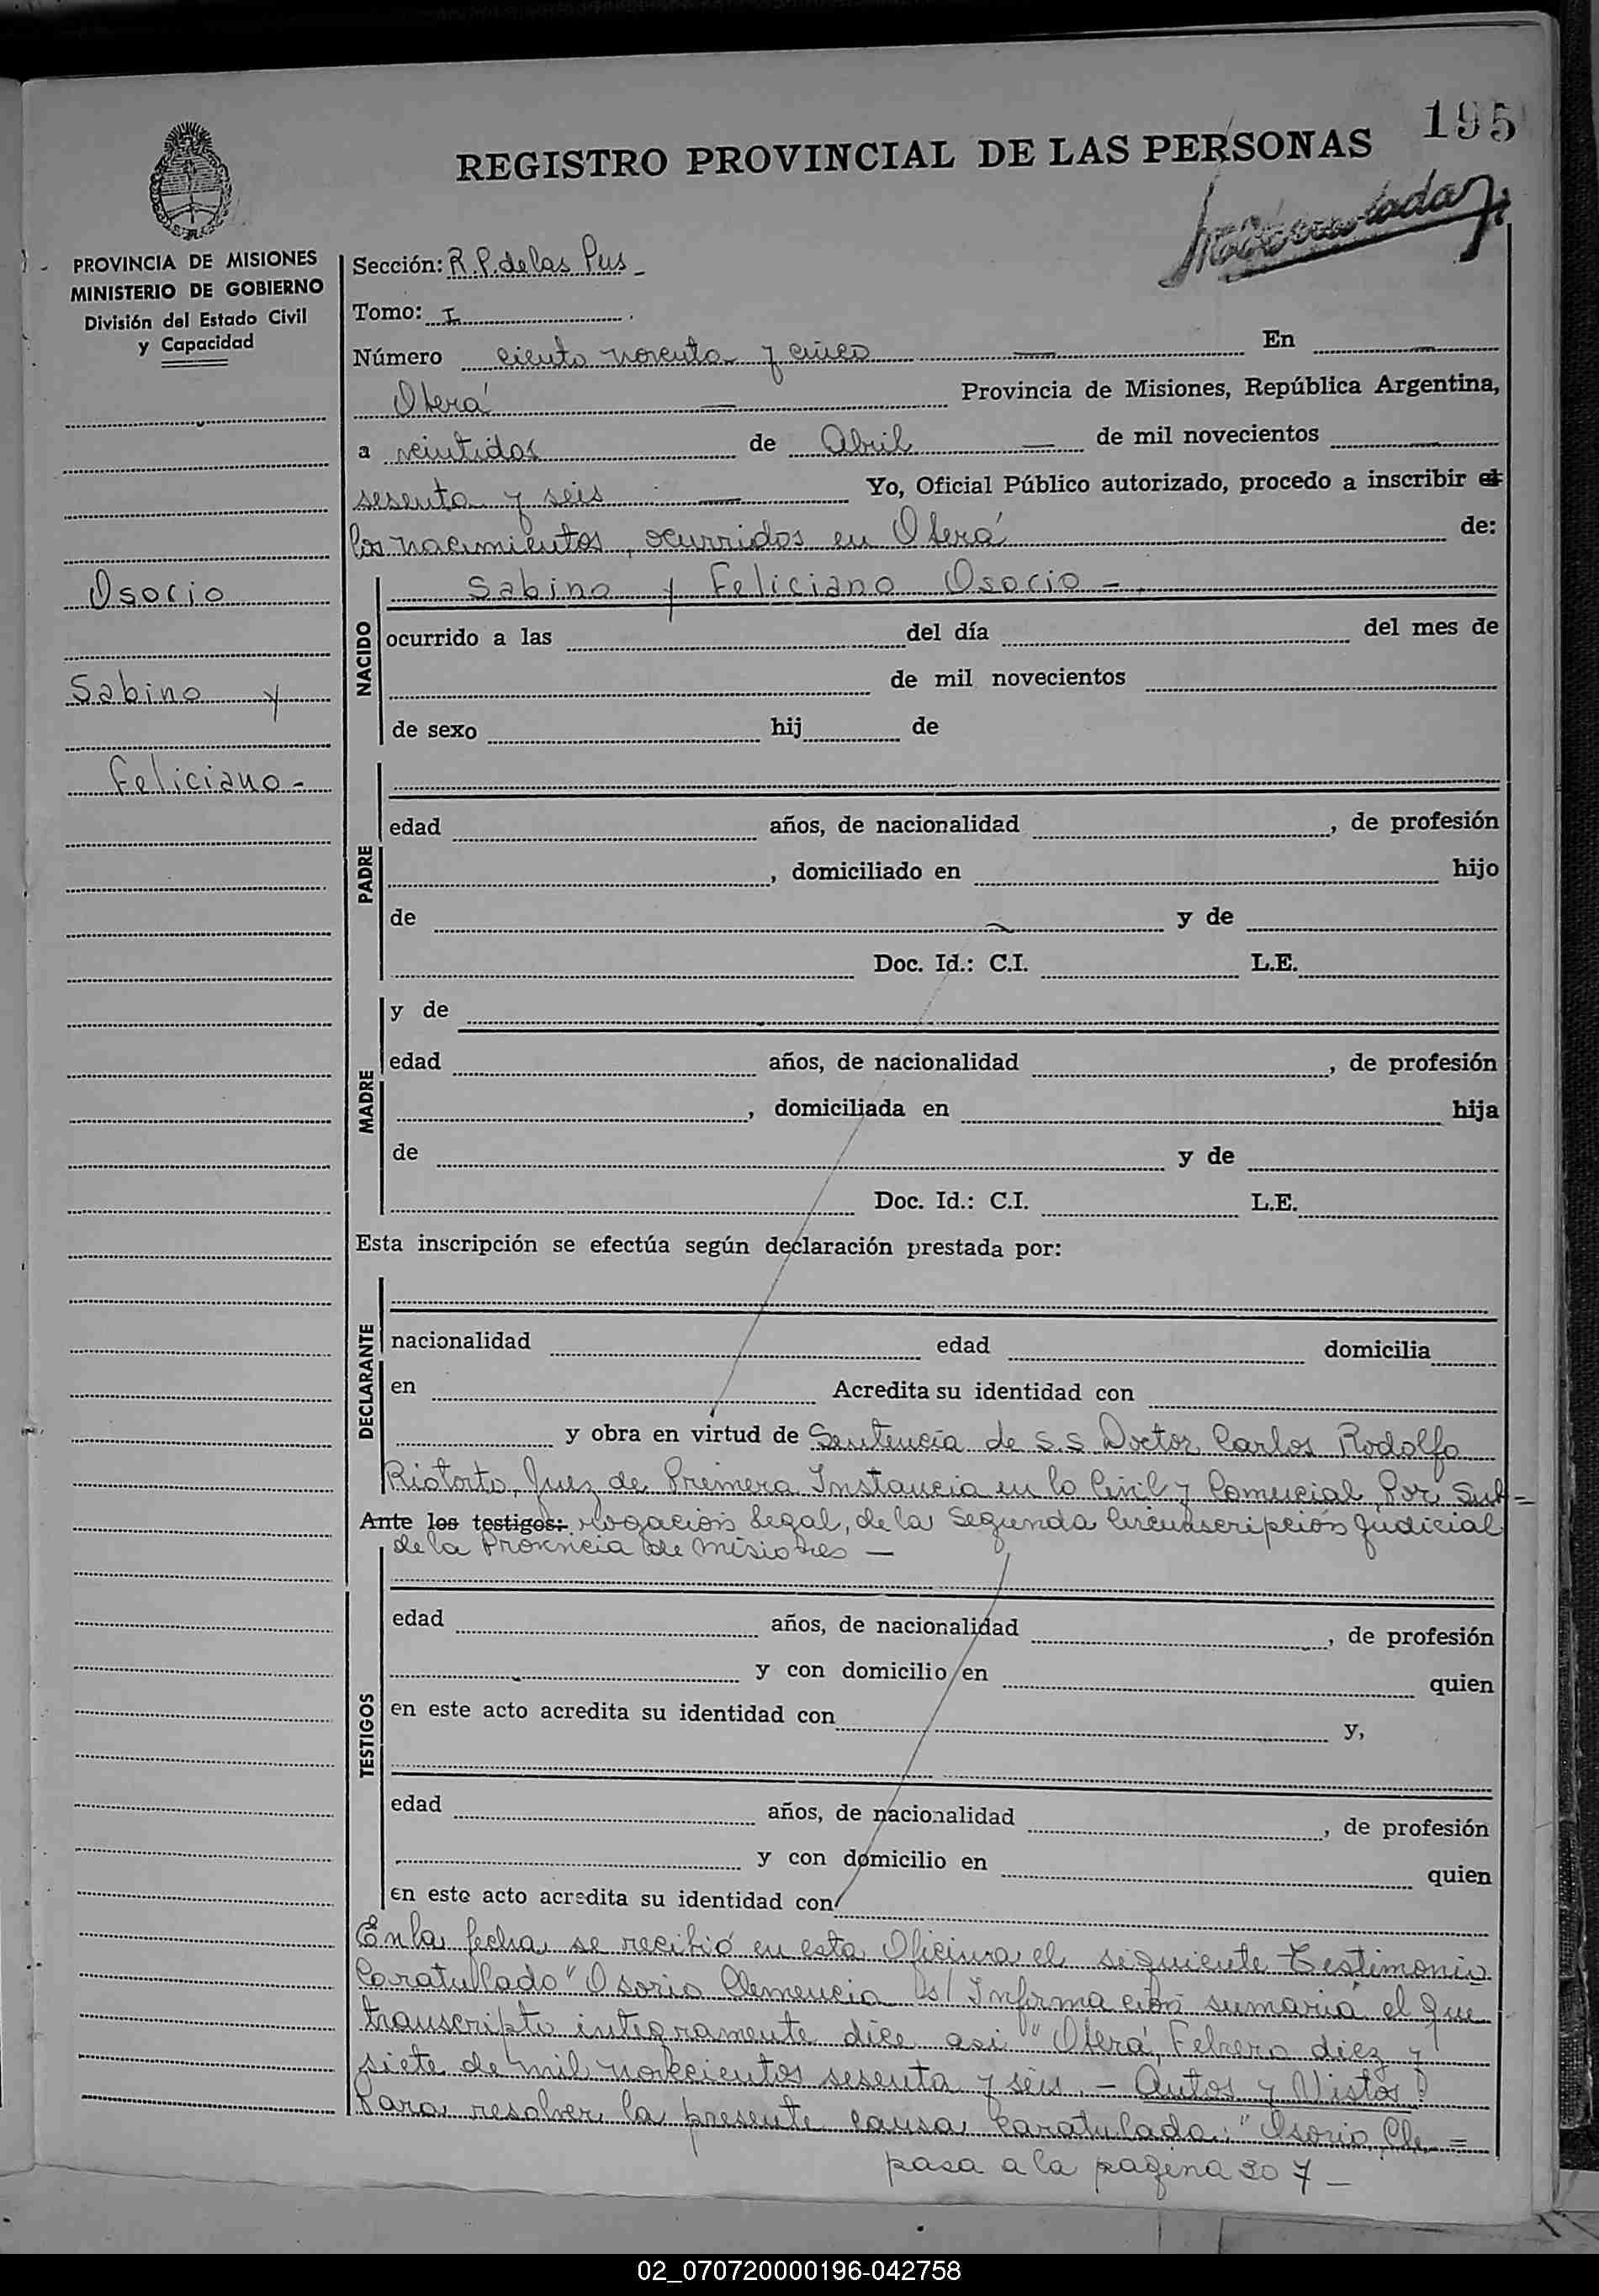 195
REGISTRO PROVINCIAL DE LAS PERSONAS
PROVINCIA DE MISIONES
MINISTERIO DE GOBIERNO
División del Estado Civil
y Capacidad
Osorio
Sabino y
Feliciano -
Sección: R.P. de las Pers -
Tomo: I
Número ciento noventa y cinco — En —
Oberá — Provincia de Misiones, República Argentina,
a veintidos de Abril — de mil novecientos —
sesenta y seis — Yo, Oficial Público autorizado, procedo a inscribir el
los nacimientos, ocurridos en Oberá de:
NACIDO
Sabino y Feliciano Osorio -
ocurrido a las del día del mes de
de mil novecientos
de sexo hij de
PADRE
edad años, de nacionalidad , de profesión
, domiciliado en hijo
de y de
Doc. Id.: C.I. L.E.
MADRE
y de
edad años, de nacionalidad , de profesión
, domiciliada en hija
de y de
Doc. Id.: C.I. L.E.
Esta inscripción se efectúa según declaración prestada por:
DECLARANTE
nacionalidad edad domicilia
en Acredita su identidad con
y obra en virtud de Sentencia de S.S. Doctor Carlos Rodolfo
Riotorto, Juez de Primera Instancia en lo Civil y Comercial, Por Sub=
Ante los testigos: rogación Legal, de la Segunda Circunscripción Judicial
de la Provincia de Misiones —
TESTIGOS
edad años, de nacionalidad , de profesión
y con domicilio en quien
en este acto acredita su identidad con y,
edad años, de nacionalidad , de profesión
y con domicilio en quien
en este acto acredita su identidad con
En la fecha se recibió en esta Oficina el siguiente Testimonio
Caratullado "Osorio Clemencia s/ Información sumaria" el que
transcripto integramente dice asi "Oberá, Febrero diez y
siete de mil novecientos sesenta y seis. - Autos y Vistos:
Para resolver la presente causa caratulada: "Osorio, Cle =
pasa a la pagina 307 -
02_070720000196-042758